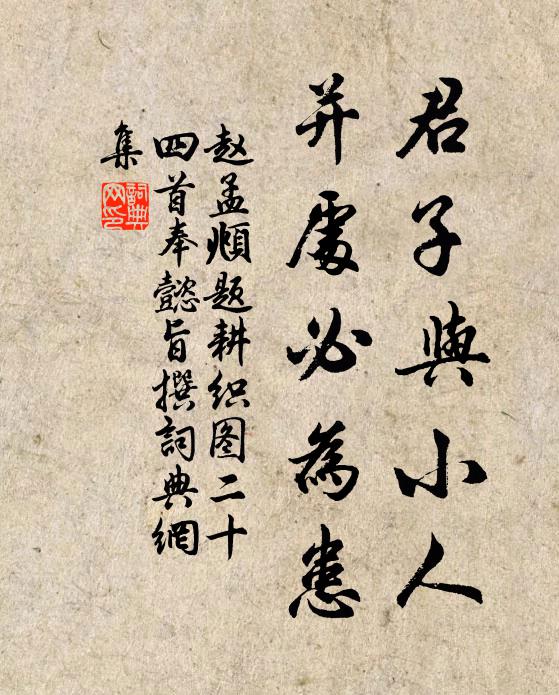 君子與小人
并處必為患
赵孟頫题耕织图二十
四首奉懿旨撰詞典網
集
詞典網印